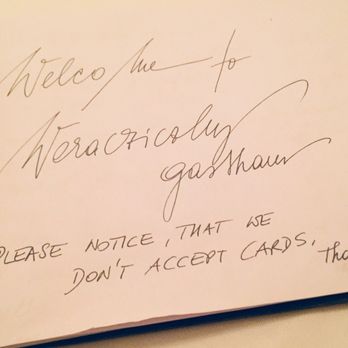 Welcome to
Woracziczky
gasthaus
PLEASE NOTICE, THAT WE
DON'T ACCEPT CARDS.